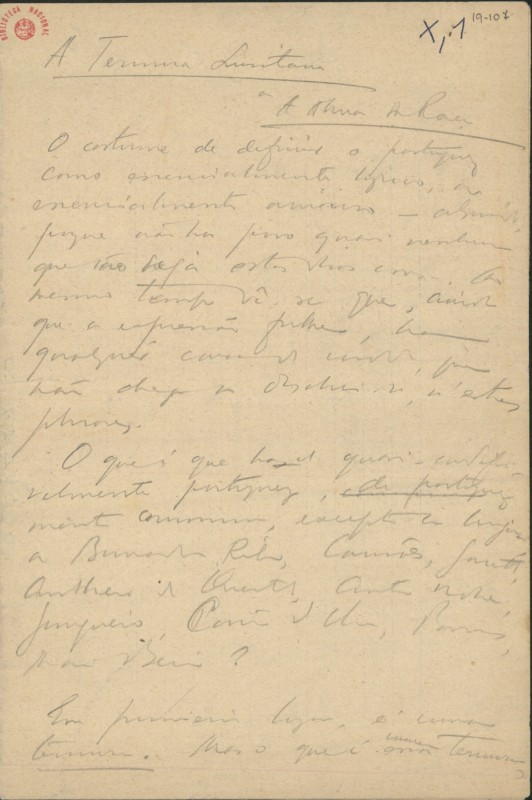 BIBLIOTECA NACIONAL
LISBOA
19-107
X, 1
A Ternura Lusitana
ou
A Alma da Raça
O costume de definir o portuguez
como essencialmente lyrico, ou
essencialmente amoroso — absurdo
porque não ha povo quasi nenhum
que não seja estas duas cousas. Ao
mesmo tempo vê-se que, ainda
que a expressão falhe, ha
qualquer cousa de verdade, que
não chega a dizer-se, n'estas
phrases.
O que é que ha de quasi-
velmente portuguez, de portuguez
mente commum, excepto a lingua
a Bernardim Ribeiro, Camões, Garrett,
Anthero de Quental, Antonio Nobre,
Junqueiro, Corrêa d'Oliveira, Pascoaes,
Mario Beirão?
Em primeiro logar, é uma
ternura. Mas o que é essa ternura